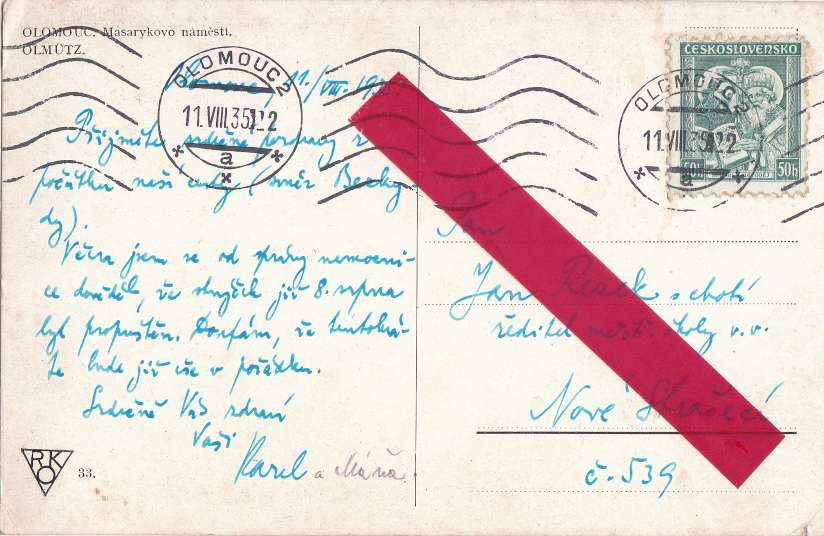 OLOMOUC. Masarykovo náměstí.
OLMÜTZ.
OLOMOUC 2
11.VIII.35 22
a
Olomouc, 11./VIII. 19
Přijměte srdečné pozdravy z
počátku naší cesty (směr Besky-
dy).
Včera jsem se od správy nemocni-
ce dověděl, že strýček již 8. srpna
byl propuštěn. Doufám, že tentokrá-
te bude již vše v pořádku.
Srdečně Vás zdraví
Vaši
Karel a Máňa.
RKO
33.
ČESKOSLOVENSKO
50h 50h
OLOMOUC 2
11.VIII.35 22
a
Pan
Jan Pesek s chotí
ředitel měšť. školy v.v.
Nové Strašecí
č. 539